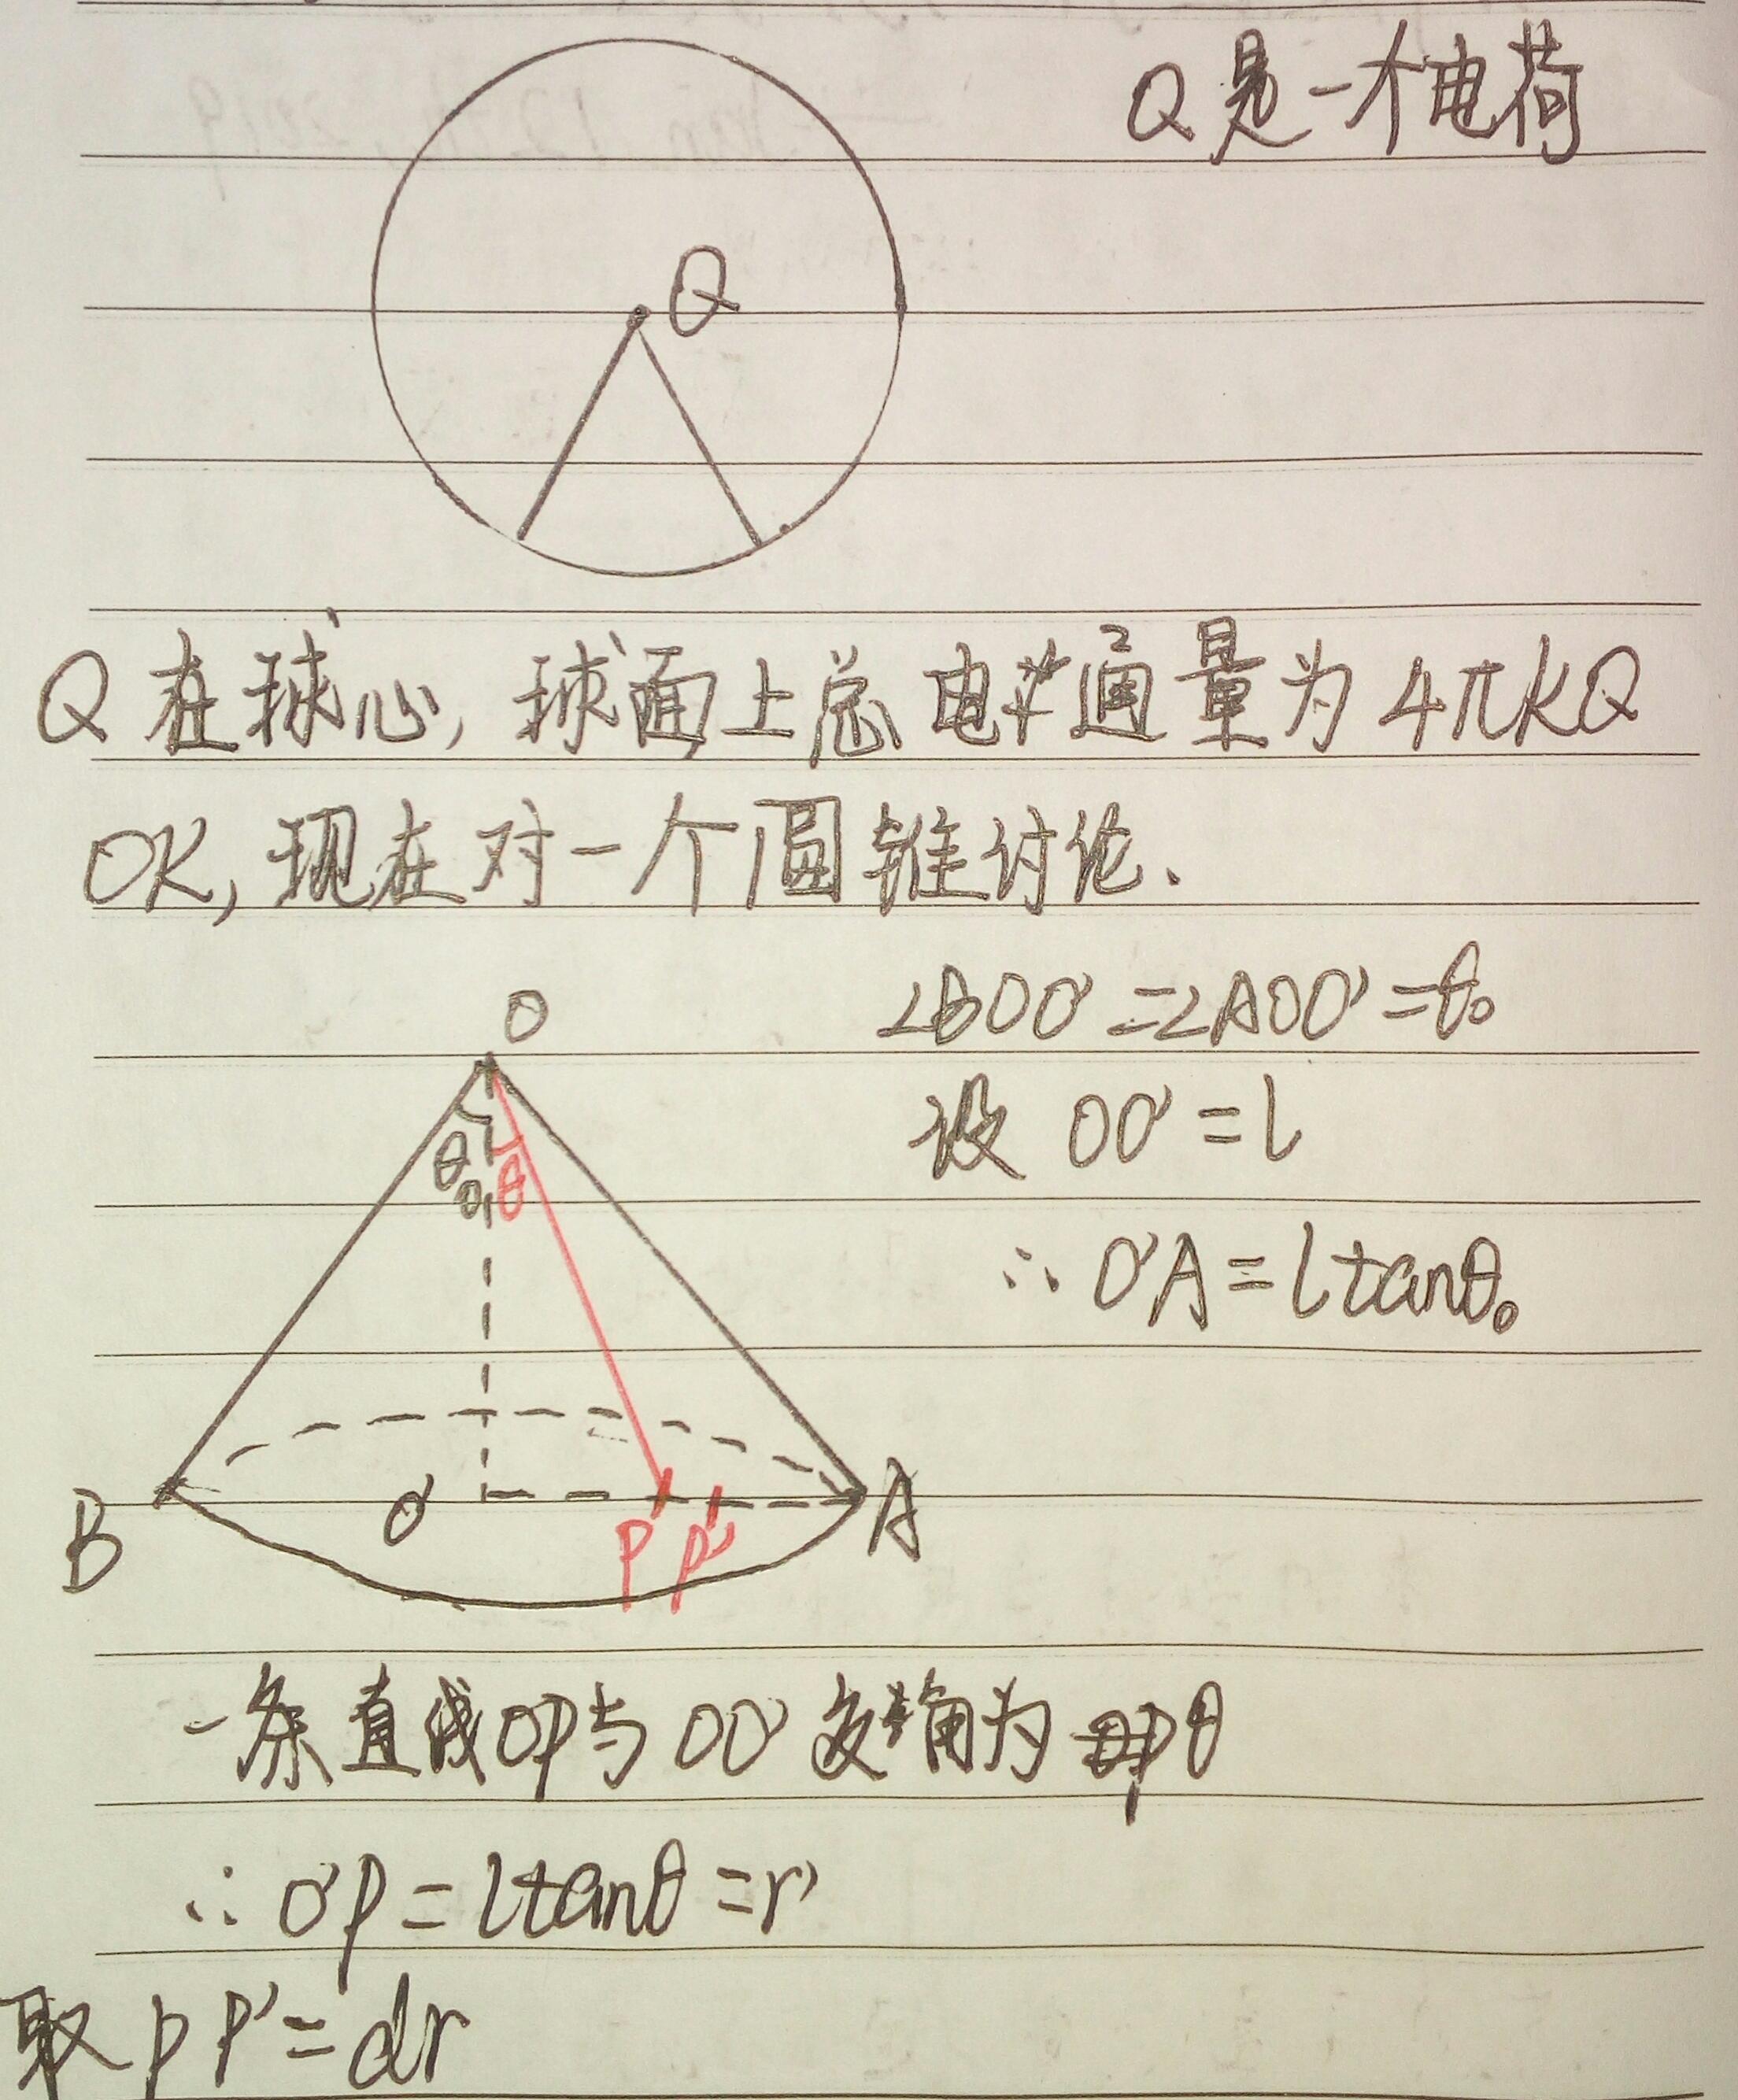 Q是一个电荷
Q
Q在球心,球面上总电通量为4πkQ
OK,现在对一个圆锥讨论.
O
∠BOO'=∠AOO'=θ₀
θ₀
θ
设 OO'=l
∴ O'A=ltanθ₀
B
O'
P
P'
A
一条直线OP与OO'夹角为θ
∴ O'P=ltanθ=r
取PP'=dr